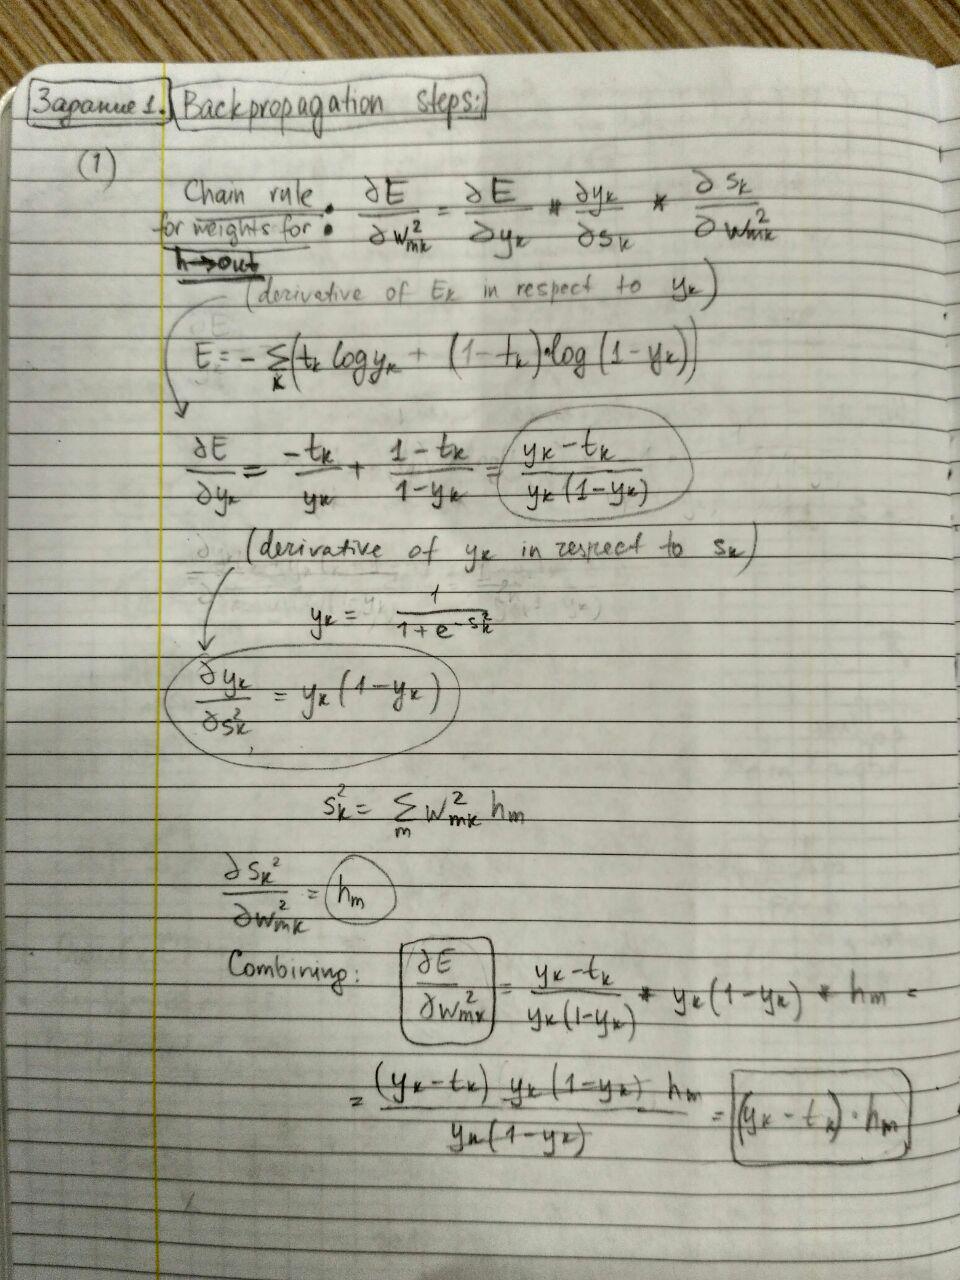 Задание 1. Backpropagation steps:
(1)
Chain rule for weights for h→out : ∂E/∂w²mk = ∂E/∂yk * ∂yk/∂sk * ∂sk/∂w²mk
(derivative of Ek in respect to yk)
E = -Σk(tk log yk + (1-tk)·log(1-yk))
∂E/∂yk = -tk/yk + (1-tk)/(1-yk) = (yk-tk)/(yk(1-yk))
(derivative of yk in respect to sk)
yk = 1/(1+e^-s²k)
∂yk/∂s²k = yk(1-yk)
s²k = Σm w²mk hm
∂sk²/∂w²mk = hm
Combining: ∂E/∂w²mk = (yk-tk)/(yk(1-yk)) * yk(1-yk) * hm =
= ((yk-tk) yk(1-yk) hm)/(yk(1-yk)) = (yk-tk)·hm